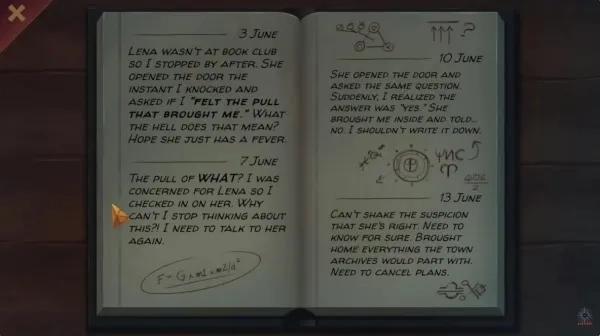 3 June
Lena wasn't at book club
so I stopped by after. She
opened the door the
instant I knocked and
asked if I "felt the pull
that brought me." What
the hell does that mean?
Hope she just has a fever.
7 June
The pull of WHAT? I was
concerned for Lena so I
checked in on her. Why
can't I stop thinking about
this?! I need to talk to her
again.
?
10 June
She opened the door and
asked the same question.
Suddenly, I realized the
answer was "yes." She
brought me inside and told...
no. I shouldn't write it down.
13 June
Can't shake the suspicion
that she's right. Need to
know for sure. Brought
home everything the town
archives would part with.
Need to cancel plans.